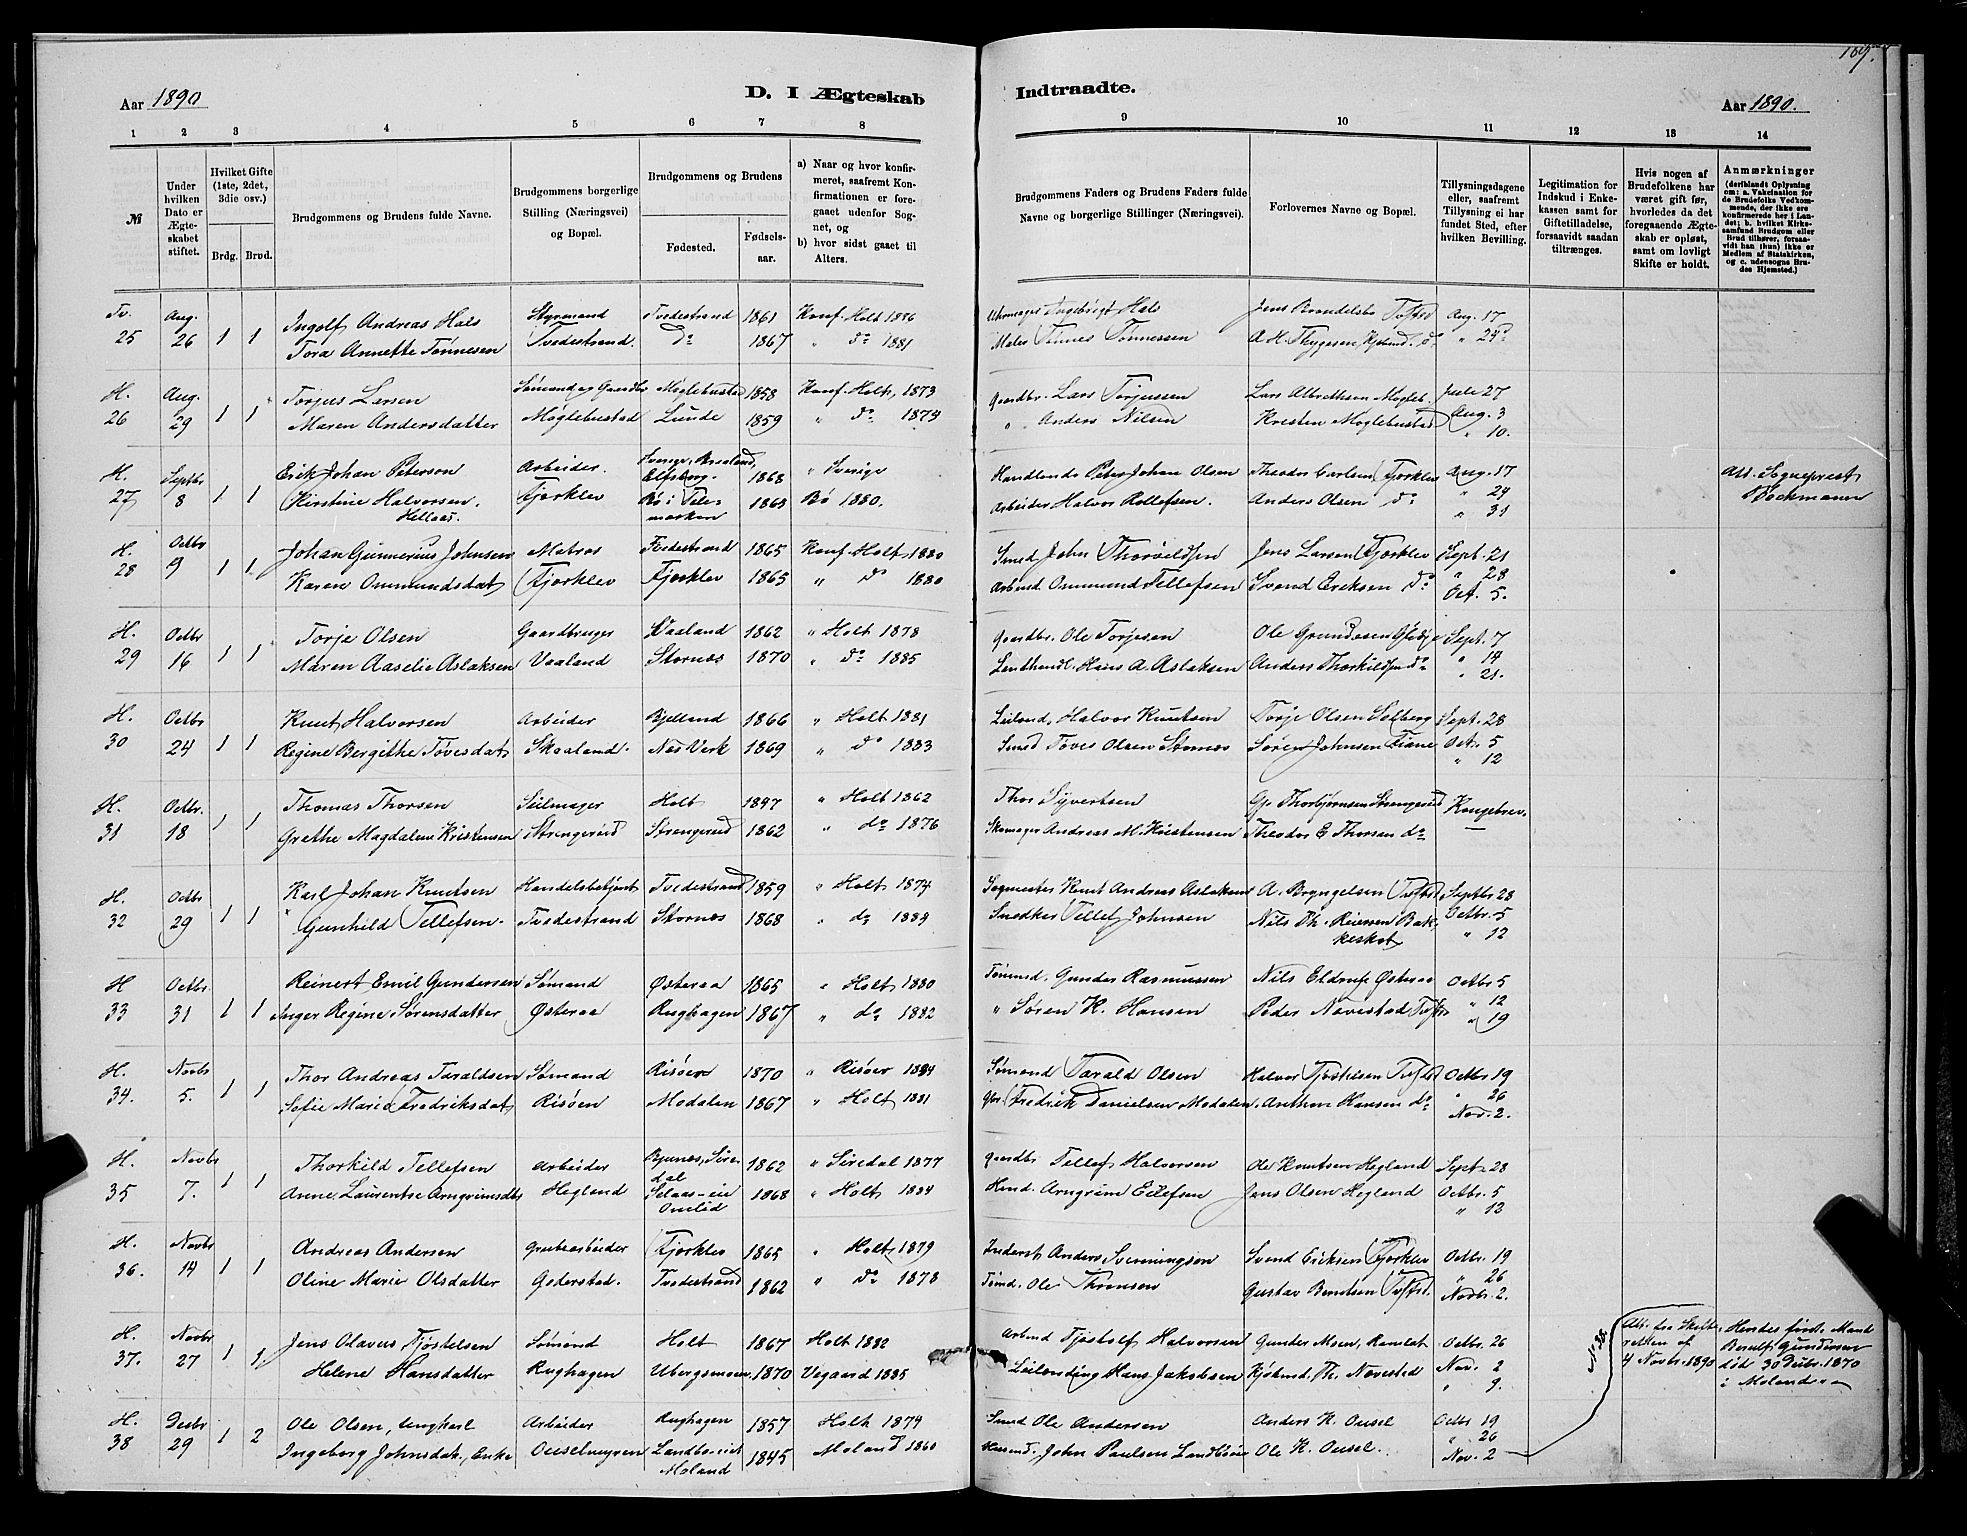 187.
Aar 1890
D. I Ægteskab
Indtraadte.
Aar 1890.
1 2 3 4 5 6 7 8 9 10 11 12 13 14
№
Under hvilken Dato er Ægteskabet stiftet.
Hvilket Gifte (1ste, 2det, 3die osv.)
Brdg. Brud.
Brudgommens og Brudens fulde Navne.
Brudgommens borgerlige Stilling (Næringsvei) og Bopæl.
Brudgommens og Brudens
Fødested.
Fødselsaar.
a) Naar og hvor konfirmeret, saafremt Konfirmationen er foregaaet udenfor Sognet, og
b) hvor sidst gaaet til Alters.
Brudgommens Faders og Brudens Faders fulde Navne og borgerlige Stillinger (Næringsvei).
Forlovernes Navne og Bopæl.
Tillysningsdagene eller, saafremt Tillysning ei har fundet Sted, efter hvilken Bevilling.
Legitimation for Indskud i Enkekassen samt for Giftetilladelse, forsaavidt saadan tiltrænges.
Hvis nogen af Brudefolkene har været gift før, hvorledes da det foregaaende Ægteskab er opløst, samt om lovligt Skifte er holdt.
Anmærkninger
(deriblandt Oplysning om: a. Vakcination for de Brudefolks Vedkommende, der ikke ere konfirmerede her i Landet; b. hvilket Kirkesamfund Brudgom eller Brud tilhører, forsaavidt han (hun) ikke er Medlem af Statskirken, og c. udensogns Brudes Hjemsted.)
Tv. Aug. Ingolf Andreas Hals Styrmand Tvedestrand 1861 Konf. Holt 1876 Uhrmager Ingebrigt Hals Jens Brendelsbo Tvstrd Aug. 17
25 26 1 1 Tora Annette Tønnesen Tvedestrand. do 1867 " do 1881 Maler Tønnes Tønnessen A. H. Thygesen Kjøbmd. do " 24
H. Aug. Torjus Larsen Sømand og Gaardbr. Moglebustad 1858 Konf. Holt, 1873 Gaardbr. Lars Torjussen Lars Albrethsen Mogleb. Jule 27
26 29 1 1 Maren Andersdatter Moglebustad Lunde 1859 " do 1874 " Anders Nilsen Kresten Moglebustad Aug. 3
" 10.
H. Septbr Erik Johan Peterson Arbeider. Sverige, Elfsborg 1868 " Sverige Handlende Peter Johan Olsen Theodor Carlsen Fjorklev Aug. 17 Att. Sogneprest
27 8 1 1 Kirstine Halvorsen Hellaas. Fjorklev Bø i Telemarken 1863 Bø 1880. Arbeider Halvor Rollefsen. Anders Olsen do " 24 Bockmann
" 31
H. Octbr Johan Gunnerius Johnsen Matros Tvedestrand 1865 Konf. Holt 1880 Smed John Thorvildsen Jens Larsen Fjorklev Sept. 21
28 9 1 1 Karen Ommundsdat Fjorklev Fjorklev 1865 " do 1880 Arbmd Ommund Tellefsen Svend Eriksen do " 28
Oct. 5.
H. Octbr Torje Olsen Gaardbruger Vaaland 1862 " Holt 1878 Gaardbr. Ole Torjesen Ole Gundersen Sept. 7
29 16 1 1 Maren Aaselie Aslaksen Vaaland Stornæs 1870 " do 1885 Landhandl. Hans A. Aslaksen Anders Thorkildsen do " 14
" 21.
H. Octbr Knut Halvorsen Arbeider Bjelland 1866 " Holt 1881 Leilend. Halvor Knutsen Torje Olsen Solberg Sept. 28
30 24 1 1 Regine Bergithe Tøvesdat Skaaland. Næs Verk 1869 " do 1883 Smed Tøves Olsen Stornæs Søren Johnsen Fiane Oct. 5
" 12
H. Octbr. Thomas Thorsen Seilmager Holt 1847 " Holt 1862 Thor Syvertsen Gj. Thorbjørnsen Strengereid Kongebrev.
31 18 1 1 Grethe Magdalene Kristensen Strengereid Strengereid 1862 " do 1876 Skomager Andreas M. Kristensen Theodor E. Thorsen do
H. Octbr Karl Johan Knutsen Handelsbetjent Tvedestrand 1859 " Holt 1874 Sagmester Knut Andreas Aslaksen A. Bryngelsen Tvstrd Septbr 28
32 29 1 1 Gunhild Tellefsen. Tvedestrand Stornæs 1868 " do 1884 Snedker Tellef Johnsen Nils Th. Reiersen Bakkeskot Octbr. 5
" 12
H Octbr. Reinert Emil Gundersen Sømand Østeraa 1865 " Holt 1880 Tømmd. Gunder Rasmussen Nils Eldrup Østeraa Octbr 5
33 31 1 1 Inger Regine Sørensdatter Østeraa Rughagen 1867 " do 1882 " Søren K. Hansen Peder Navestad Tvstr " 12
" 19
H. Novbr Thor Andreas Taraldsen Sømand Risøer 1870 " Risøer 1884 Sømand Tarald Olsen Halvor Tjøstelsen Tvstrd Octbr 19
34. 5. 1 1 Sofie Marie Fredriksdat Risøen Modalen 1867 " Holt 1881 Gbr. Fredrik Danielsen Modalen. Anthon Hansen do " 26
Nov. 2.
H. Novbr Thorkild Tellefsen Arbeider Siredal 1862 " Siredal 1877 Gaardbr Tellef Halvorsen Ole Knutsen Hegland Sept. 28
35 7. 1 1 Anne Laurentse Arngrimsdtr Hegland Selaas-eie Omlid 1868 " Holt 1884 Hmd. Arngrim Eilefsen Jens Olsen Hegland Octbr. 5
" 12
H. Novbr Andreas Andersen Grubearbeider Fjorklev 1865 " Holt 1879 Inderst Anders Svenningsen Svend Eriksen Fjorklev Octbr. 19
36. 14 1 1 Oline Marie Olsdatter Goderstad. Tvedestrand 1862 " do 1878 Tømd. Ole Thomsen Gustav Berntsen Tvstrd. " 26
Novbr. 2.
H. Novbr Jens Olavus Tjøstelsen Sømand Holt 1867 Holt 1882 Arbmd Tjøstolf Halvorsen Gunder Moen, Ramlat Octbr. 26
37. 27 1 1 Helene Hansdatter Rughagen Ubergsmoen 1870 Vegaard 1885 Leilending Hans Jakobsen Kjøbmd. Th. Navestad Nov. 2
" 9.
H. Decbr Ole Olsen, ungkarl Arbeider Rughagen 1857 Holt 1874 Smed Ole Andersen Anders K. Ousel Octbr 19
38 29 1 2 Ingeborg Johnsdat., Enke Ouselmyren Landbo-eie Moland 1845 Moland 1860 Husmd. John Paulsen Landbøeie Ole K. Ousel. " 26
Nov. 2
N. 38.
Att. fra Skifteretten af 4 Novbr. 1890
Hendes første Mand Berulf Gundersen død 30 Decbr. 1870 i Moland